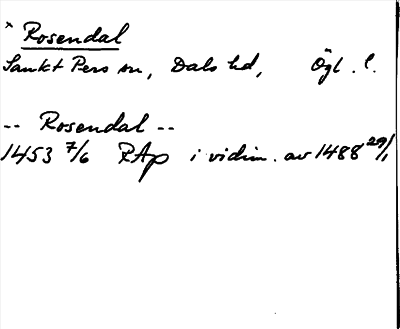 × Rosendal
Sankt Pers sn, Dals hd, Ögl. l.
-- Rosendal --
1453 7/6 RAp i vidim. av 1488 29/1